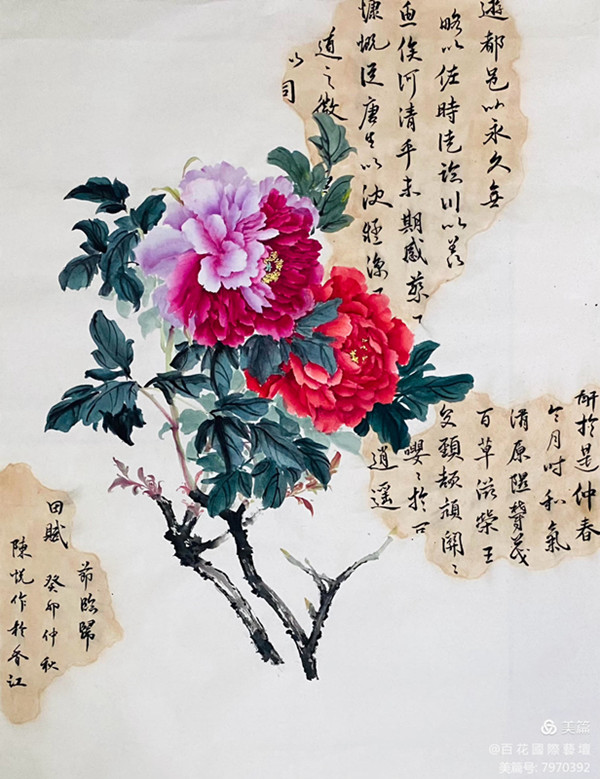 遊都邑以永久無
略以佐時徒臨川以羨
魚俟河清乎未期感蔡
慷慨從唐生以決疑諒
道之微
以同
於是仲春
令月时和氣
清原隰鬱茂
百草滋榮王
交頸頡頏關〻
嚶〻於
逍遙
節臨歸
田賦 癸卯仲秋
陳悅作於香江
美篇
@百花國際藝壇
美篇号: 7970392